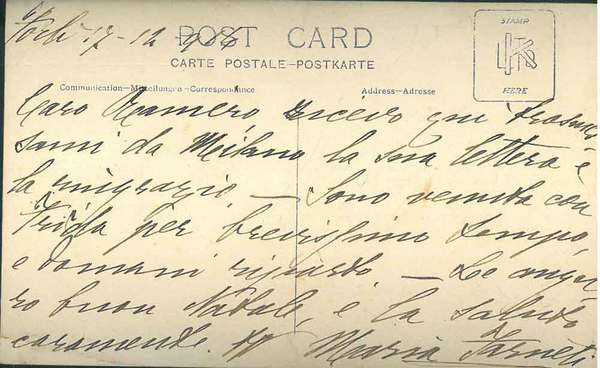 Forlì 17-12-908
POST CARD
STAMP
CARTE POSTALE-POSTKARTE
Communication-Mitteilungen-Correspondance Address-Adresse
HERE
Caro ricevo qui trasmes
sami da Milano la Sua lettera e
la ringrazio. — Sono venuta con
per brevissimo tempo,
e domani riparto — Le augu
ro buon Natale, e La saluto
caramente.
Maria Farneti